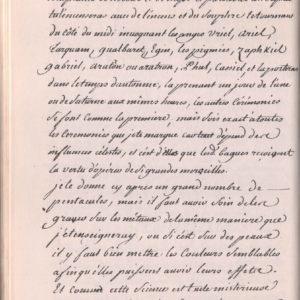 tu l'encenseras avec de l'encens et du Souphre te tournant
du côté du midi invoquant les anges Uriel, Ariel,
Egin, les pigmées, Zaphkiel
gabriel, araton ou aratron, Phul, Cassiel et la
dans le temps d'automne, la prenant un jour de lune
ou de Saturne aux mêmes heures, les autres Cérémonies
se font comme la première, mais sois exact à toutes
les Ceremonies que je te marque car tout dépend des
influences célestes, et c'est d'elles que les bagues reçoivent
la vertu d'opérer de si grandes merveilles.
je te donne cy après un grand nombre de
pentacules, mais il faut avoir soin de les
graver sur les métaux de la même manière que
je t'enseigneray, ou si c'est sur des peaux
il y faut bien mettre les Couleurs Semblables
afin qu'ils puissent avoir leurs effets.
Et comme cette Science est toute misterieuse